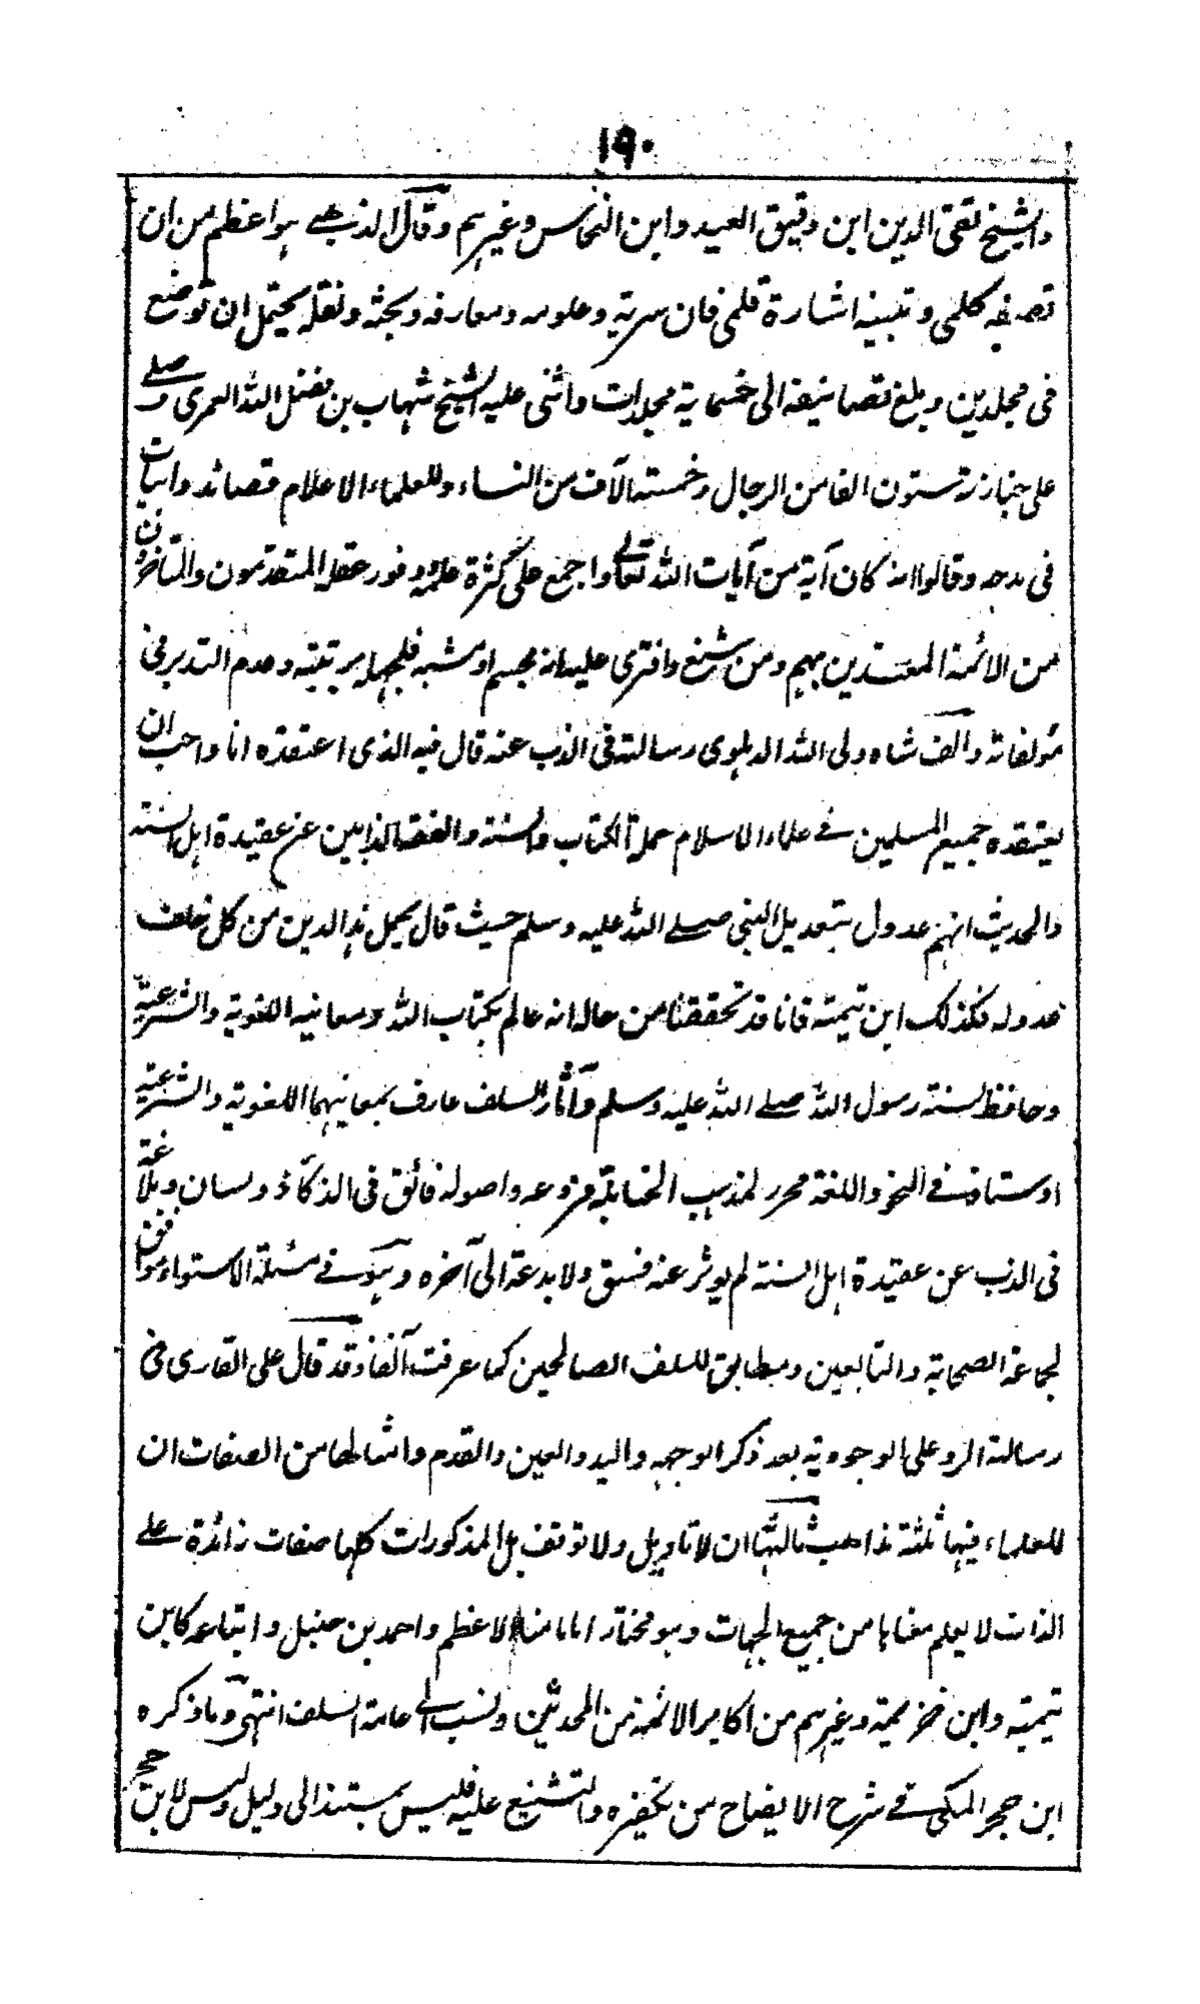 ١٩٠
والشيخ تقى الدين ابن دقيق العيد وابن النحاس وغيرهم وقال الذهبي هو اعظم من ان
تصفه كلمى وتبينه اشارة قلمى فان سيرته وعلومه ومعارفه وبحثه ونقله يحتمل ان توضع
فى مجلدين وبلغ تصانيفه الى خمسماية مجلدات واثنى عليه الشيخ شهاب بن فضل الله العمرى وصلے
على جنازته ستون الفا من الرجال وخمسة آلاف من النساء وللعلماء الاعلام قصائد وابيات
فى مدحه وقالوا انه كان آية من آيات الله تعالى واجمع على كثرة علمه ووفور عقله المتقدمون والمتاخرون
من الائمة المعتدين بهم ومن شنع وافترى عليه انه مجسم او مشبه فلجهله برتبته وعدم التدبر فى
مؤلفاته والف شاه ولى الله الدهلوى رسالة فى الذب عنه قال فيه الذى اعتقده انا واحب ان
يعتقده جميع المسلمين فے علماء الاسلام حملة الكتاب والسنة والفقه الذابين عن عقيدة اهل السنة
والحديث انهم عدول بتعديل النبى صلے الله عليه وسلم حيث قال يحمل هذا الدين من كل خلف
عدوله فكذلك ابن تيمية فانا قد تحققنا من حاله انه عالم بكتاب الله ومعانيه اللغوية والشرعية
وحافظ لسنة رسول الله صلے الله عليه وسلم وآثار السلف عارف بمعانيهما اللغوية والشرعية
اوستاذ فے النحو واللغة محرر لمذهب الحنابلة فروعه واصوله فائق فى الذكاء ذو لسان وبلاغة
فى الذب عن عقيدة اهل السنة لم يوثر عنه فسق ولا بدعة الى آخره وهو فے مسئلة الاستواء موافق
لجماعة الصحابة والتابعين ومطابق للسلف الصالحين كما عرفت آنفا وقد قال على القارى فى
رسالة الرد على الوجودية بعد ذكر الوجه واليد والعين والقدم وامثالها من الصفات ان
للعلماء فيها ثلثة مذاهب ثالثها ان لا تاويل ولا توقف بل المذكورات كلها صفات زائدة علے
الذات لا يعلم معناها من جميع الجهات وهو مختار امامنا الاعظم واحمد بن حنبل واتباعه كابن
تيمية وابن خزيمة وغيرهم من اكابر الائمة من المحدثين ونسب الے عامة السلف انتهى وما ذكره
ابن حجر المكى فے شرح الايضاح من تكفيره والتشنيع عليه فليس بمستند الى دليل وليس لابن حجر